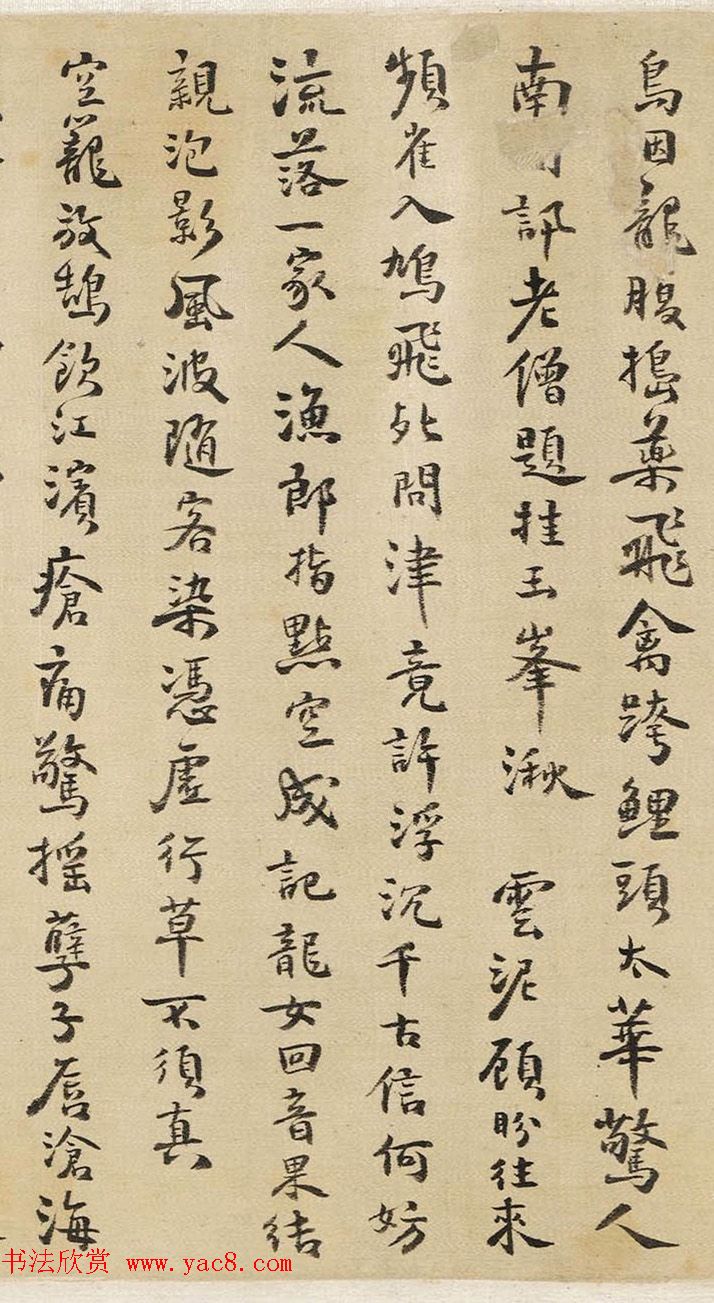 鳥因籠腹搗藥飛禽跨鯉頭太華驚人
南詶老僧題挂玉峯湫 雲泥顧盼往來
頻雀入鳩飛此問津竟許浮沉千古信何妨
流落一家人漁郎指點空成記龍女回音果結
親泡影風波隨客染憑虛行草不須真
空籠放鵠飲江濱瘡痛驚搖孽子唇滄海
书法欣赏 www.yac8.com